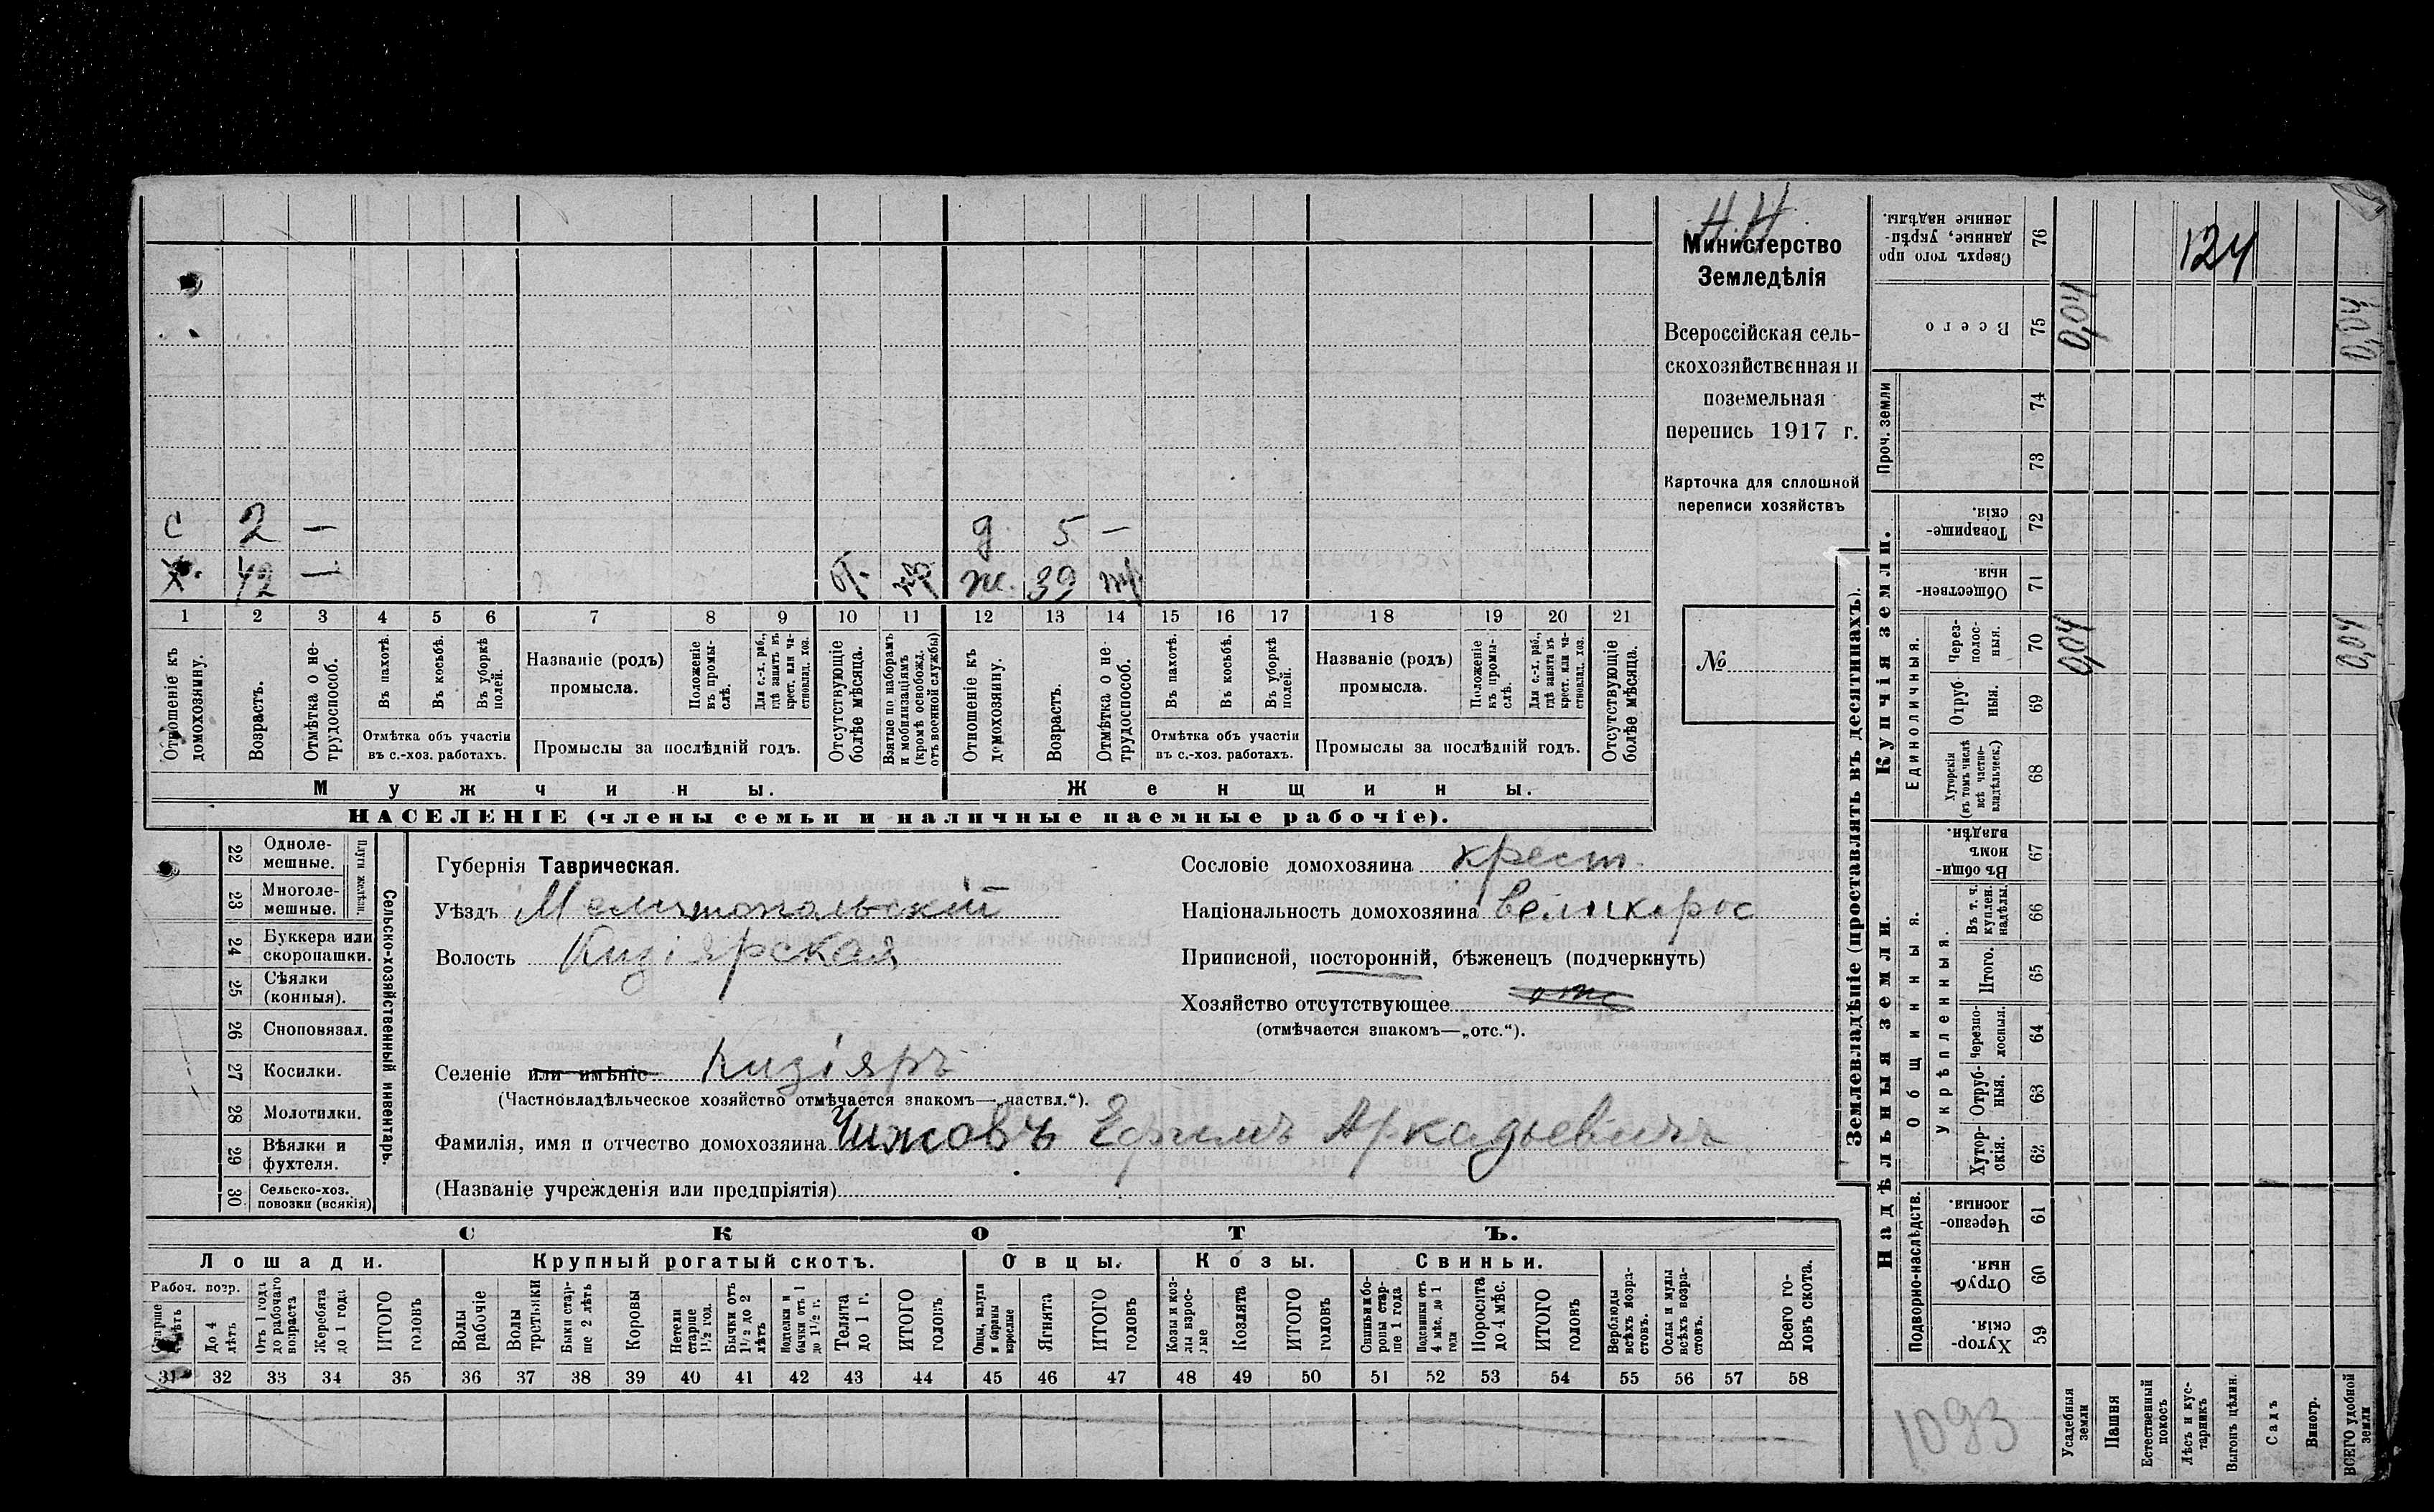 Н.Н.
Министерство
Земледѣлія
Всероссійская сель-
скохозяйственная и
поземельная
перепись 1917 г.
Карточка для сплошной
переписи хозяйствъ
№
с 2 — д. 5 —
х. 42 — ж. 39
1 2 3 4 5 6 7 8 9 10 11 12 13 14 15 16 17 18 19 20 21
Отношеніе къ домохозяину.
Возрастъ.
Отмѣтка о не-трудоспособ.
Въ пахотѣ.
Въ косьбѣ.
Въ уборкѣ полей.
Отмѣтка объ участіи
въ с.-хоз. работахъ.
Названіе (родъ)
промысла.
Положеніе въ промы-слѣ.
Для с.-х. раб., гдѣ занятъ въ крест. или ча-ствовлад. хоз.
Промыслы за послѣдній годъ.
Отсутствующіе болѣе мѣсяца.
Взятые по наборамъ и мобилизаціямъ (кромѣ освобожд. отъ военной службы)
Отношеніе къ домохозяину.
Возрастъ.
Отмѣтка о не-трудоспособ.
Въ пахотѣ.
Въ косьбѣ.
Въ уборкѣ полей.
Отмѣтка объ участіи
въ с.-хоз. работахъ.
Названіе (родъ)
промысла.
Положеніе въ промы-слѣ.
Для с.-х. раб., гдѣ занята въ крест. или ча-ствовлад. хоз.
Промыслы за послѣдній годъ.
Отсутствующіе болѣе мѣсяца.
Мужчины. Женщины.
НАСЕЛЕНІЕ (члены семьи и наличные наемные рабочіе).
22 Одноле-мешные.
23 Многоле-мешные.
Плуги желѣзн.
24 Буккера или скоропашки.
25 Сѣялки (конныя).
26 Сноповязал.
27 Косилки.
28 Молотилки.
29 Вѣялки и фухтеля.
30 Сельско-хоз. повозки (всякія)
Сельско-хозяйственный инвентарь.
Губернія Таврическая.
Уѣздъ Мелитопольскій
Волость Кизіярская
Селеніе или имѣніе Кизіяръ
(Частновладѣльческое хозяйство отмѣчается знакомъ—„частвл.“).
Фамилія, имя и отчество домохозяина Чижовъ Ефимъ Аркадьевичъ
(Названіе учрежденія или предпріятія)
Сословіе домохозяина крест.
Національность домохозяина великорос
Приписной, посторонній, бѣженецъ (подчеркнуть)
Хозяйство отсутствующее отс
(отмѣчается знакомъ—„отс.“).
СКОТЪ.
Лошади. Крупный рогатый скотъ. Овцы. Козы. Свиньи.
Рабоч. возр.
Старше лѣтъ
До 4 лѣтъ
Отъ 1 года до рабочаго возраста
Жеребята до 1 года
ИТОГО головъ
Волы рабочіе
Волы третьяки
Быки стар-ше 2 лѣтъ
Коровы
Нетели старше 1½ год.
Бычки отъ 1½ до 2 лѣтъ
Подтелки и бычки отъ 1 до 1½ г.
Телята до 1 г.
ИТОГО головъ.
Овцы, валухи и бараны взрослые
Ягнята
ИТОГО головъ
Козы и коз-лы взрос-лые
Козлята
ИТОГО головъ
Свиньи и бо-ровы стар-ше 1 года
Подсвинки отъ 4 мѣс. до 1 года
Поросята до 4 мѣс.
ИТОГО головъ
Верблюды всѣхъ возра-стовъ.
Ослы и мулы всѣхъ возра-стовъ.
Всего го-ловъ скота.
31 32 33 34 35 36 37 38 39 40 41 42 43 44 45 46 47 48 49 50 51 52 53 54 55 56 57 58
Землевладѣніе (проставлять въ десятинахъ).
Сверхъ того про-данные, укрѣп-ленные надѣлы. 76
124
Всего 75 0,04 0,04
Проч. земли 74
73
Купчія земли.
Товарище-скія. 72
Обществен-ныя. 71
Единоличныя.
Через-полос-ныя. 70 0,04 0,04
Отруб-ныя. 69
Хуторскія (въ томъ числѣ всѣ частно-владѣльческ.) 68
Надѣльныя земли.
Общинныя.
Въ общин-номъ владѣн. 67
Укрѣпленныя.
Въ т. ч. куплен. надѣлы. 66
Итого. 65
Черезпо-лосныя. 64
Отруб-ныя. 63
Хутор-скія. 62
Подворно-наслѣдств.
Черезпо-лосныя. 61
Отруб-ныя. 60
Хутор-скія. 59
1093
Усадебныя земли
Пашня
Естественный покосъ
Лѣсъ и кус-тарникъ
Выгонъ цѣлин.
Садъ
Виногр.
ВСЕГО удобной земли